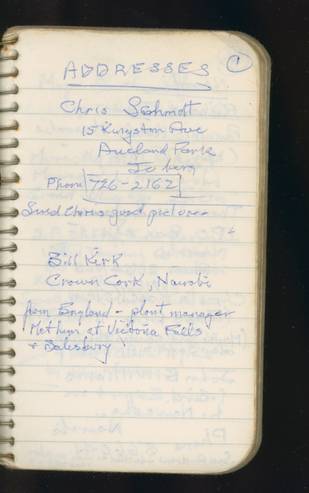 ADDRESSES
1
Chris Schmidt
15 Kingston Ave
Auckland Park
Jo'berg
Phone 726-2162
Send Chris good pictures
Bill Kirk
Crown Cork, Nairobi
from England - plant manager
Met him at Victoria Falls
+ Salesbury